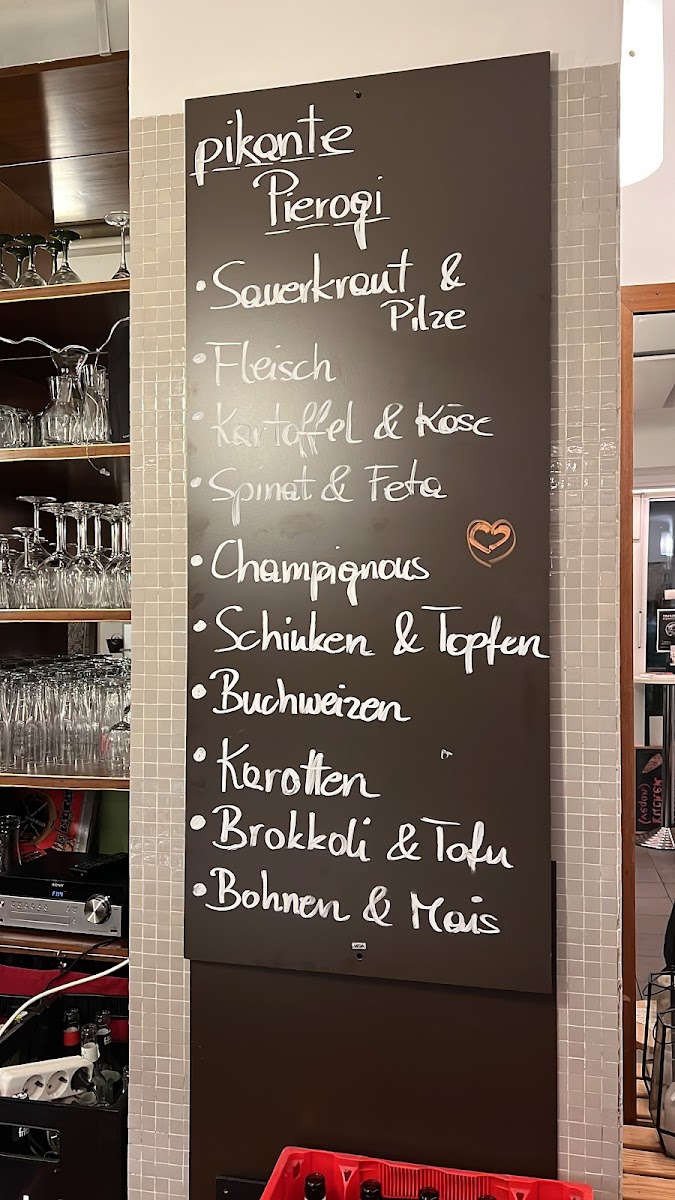 pikante
Pierogi
• Sauerkraut &
Pilze
• Fleisch
• Kartoffel & Käse
• Spinat & Feta
• Champignons
• Schinken & Topfen
• Buchweizen
• Karotten
• Brokkoli & Tofu
• Bohnen & Mais
SONY